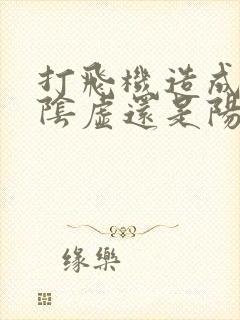 打飛機造成
陰虛還是陽
缘樂